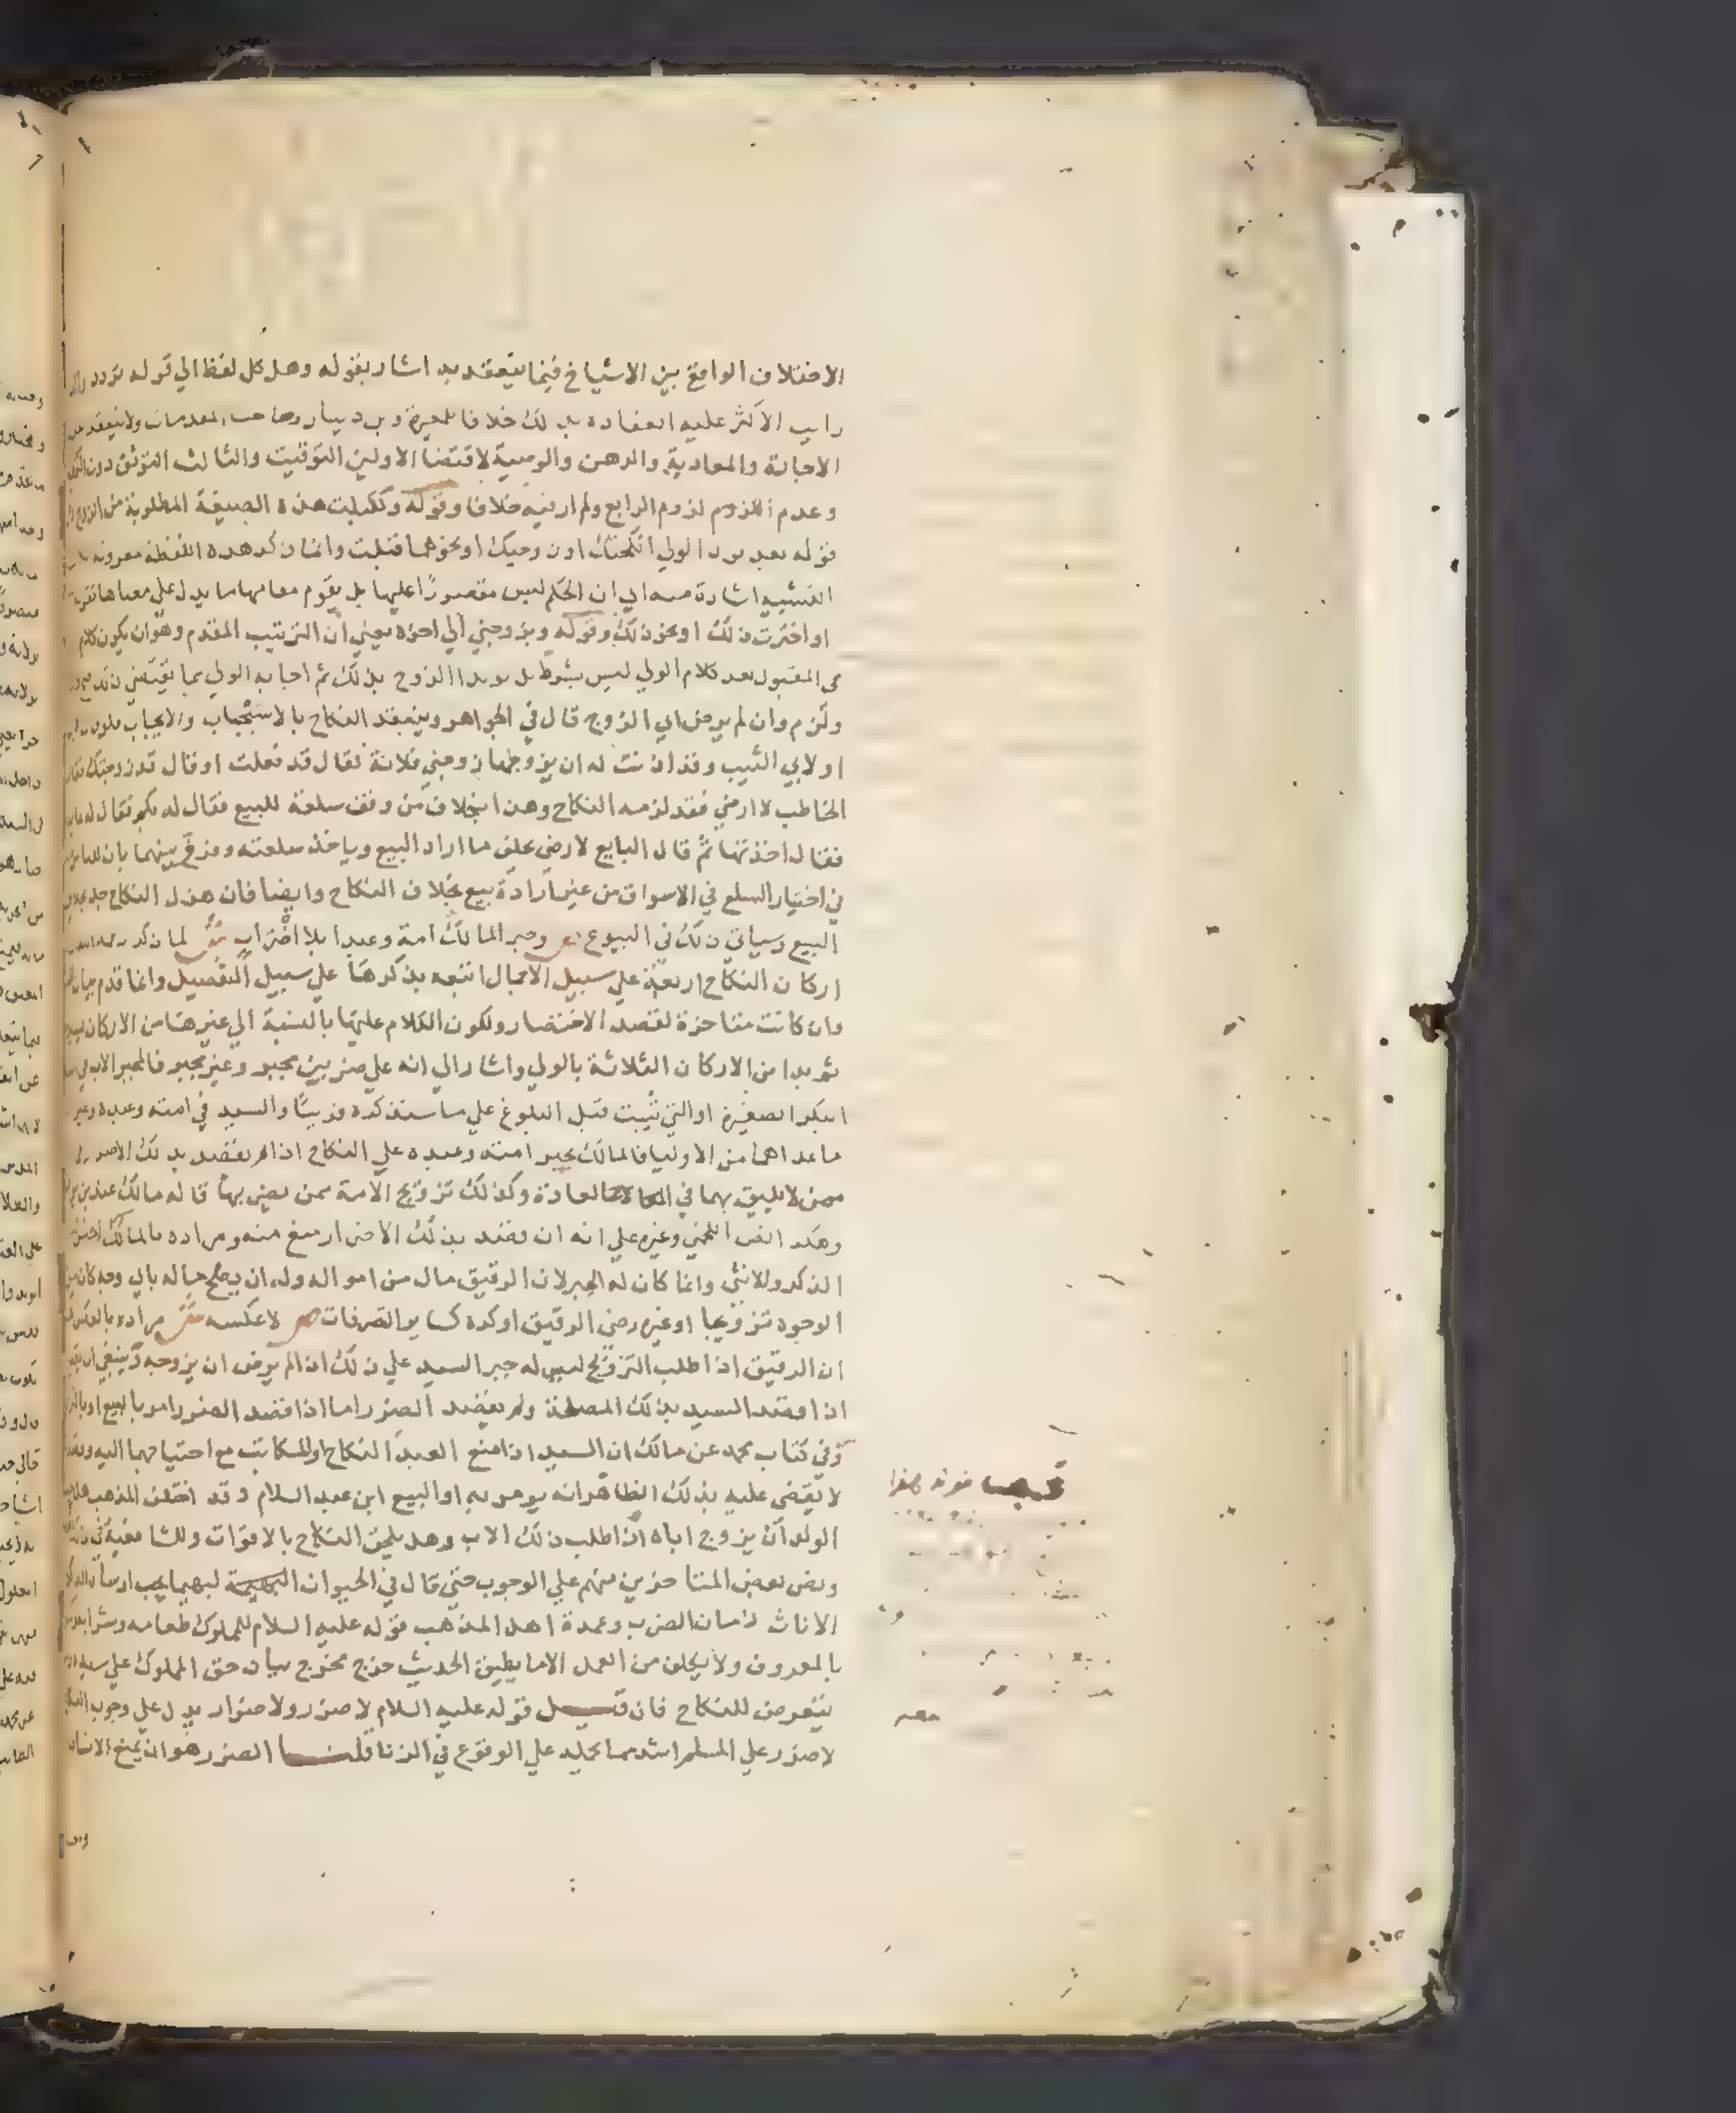 الاختلاف الواقع بين الاشياخ فيما ينعقد به اشار بقوله وهل كل لفظ الي قوله تردد
راي الاكثر عليه انعقاده بذلك خلافا للمغيرة وبن دينار وصاحب المقدمات ولا ينعقد
الاجارة والعارية والرهن والوصية لاقتضا الاولين التوقيت والثالث التوثق دون
وعدم اللزوم لزوم الرابع ولم ار فيه خلافا وقوله وكقبلت هذه الصيغة المطلوبة من الزوج
قوله بعد الولي انكحتك او زوجتك او نحوهما قبلت وانما ذكر هذه اللفظة مقرونة
التشبيه اشارة منه الي ان الحكم ليس مقصورا عليها بل يقوم مقامها ما يدل علي معناها
او اخترت ذلك او نحو ذلك وقوله وبزوجني الي اخره يعني ان الترتيب المقدم وهو ان يكون كلام
القبول بعد كلام الولي ليس بشرط بل لو بدا الزوج بذلك ثم اجابه الولي بما يقتضي ذلك صح
ولزم وان لم يرض اي الزوج قال في الجواهر وينعقد النكاح بالاستيجاب والايجاب
او لابي الثيب وقد اذنت له ان يزوجها زوجني فلانة فقال قد فعلت او قال قد زوجتك فقال
الخاطب لا ارضي فقد لزمه النكاح وهذا بخلاف من وقف سلعة للبيع فقال له بكم فقال له
فقال اخذتها ثم قال البايع لا رضي حلف ما اراد البيع وياخذ سلعته وفرق بينهما بان
في اختيار السلع في الاسواق من غير ارادة بيع بخلاف النكاح وايضا فان هزل النكاح جد بخلاف
البيع وسياتي ذلك في البيوع ص وجبر المالك امة وعبدا بلا اضرار ش لما ذكر
اركان النكاح اربعة علي سبيل الاجمال اتبعه بذكرها علي سبيل التفصيل وانما قدم
وان كانت متاخرة لقصد الاختصار ولكون الكلام عليها بالنسبة الي غيرها من الاركان
ثم بدا من الاركان الثلاثة بالولي واشار الي انه علي ضربين مجبر وغير مجبر فالمجبر الاب في
البكر الصغيرة او التي ثيبت قبل البلوغ علي ما سنذكره قريبا والسيد في امته وعبده وغير
ما عداهما من الاوليا فالمالك يجبر امته وعبده علي النكاح اذا لم يقصد بذلك الاضرار
ممن لا يليق بهما في العادة وكذلك تزويج الامة ممن يضر بها قاله مالك
وهكذا نص اللخمي وغيره علي انه ان قصد بذلك الاضرار منع منه ومراده بالمالك
الذكر والانثي وانما كان له الجبر لان الرقيق مال من امواله وله ان يصلح ماله باي وجه كان من
الوجوه تزويجا او غيره رضي الرقيق او كره كساير التصرفات ص لا عكسه ش مراده بالعكس
ان الرقيق اذا طلب التزويج ليس له جبر السيد علي ذلك اذا لم يرض ان يزوجه وينبغي ان
اذا قصد السيد بذلك المصلحة ولم يقصد الضرر اما اذا قصد الضرر امر بالبيع او
وفي كتاب محمد عن مالك ان السيد اذا منع العبد النكاح او المكاتب مع احتياجهما اليه
لا يقضي عليه بذلك الظاهر انه يومر به او البيع ابن عبد السلام وقد اختلف المذهب هل
الولد ان يزوج اباه اذا طلب ذلك الاب وهل يلحق النكاح بالاقوات وللشافعية في ذلك
ونص بعض المتاخرين منهم علي الوجوب حتي قال في الحيوان البهيمة
الاناث زمان الضرب وعمدة اهل المذهب قوله عليه السلام للمملوك طعامه وشرابه
بالمعروف ولا يكلف من العمل الا ما يطيق الحديث خرج مخرج بيان حق المملوك علي سيده
يتعرض للنكاح فان قيل قوله عليه السلام لا ضرر ولا ضرار يدل علي وجوب
لا ضرر علي المسلم اشد مما يحمله علي الوقوع في الزنا قلنا الضرر هو ان يمنع الانسان